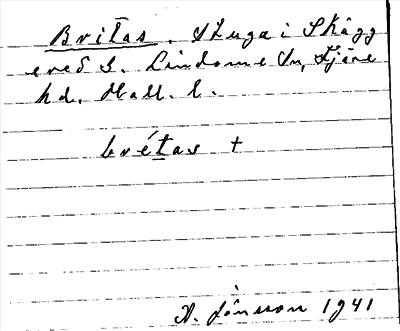 Britas. Stuga i Skägg
ered S. Lindome sn, Fjäre
hd. Hall. l.
brétas +
A. Jönsson 1941